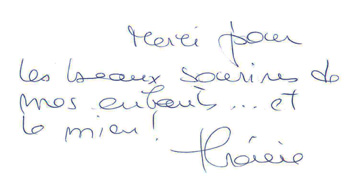 Merci pour
les beaux sourires de
mes enfants... et
le mien !